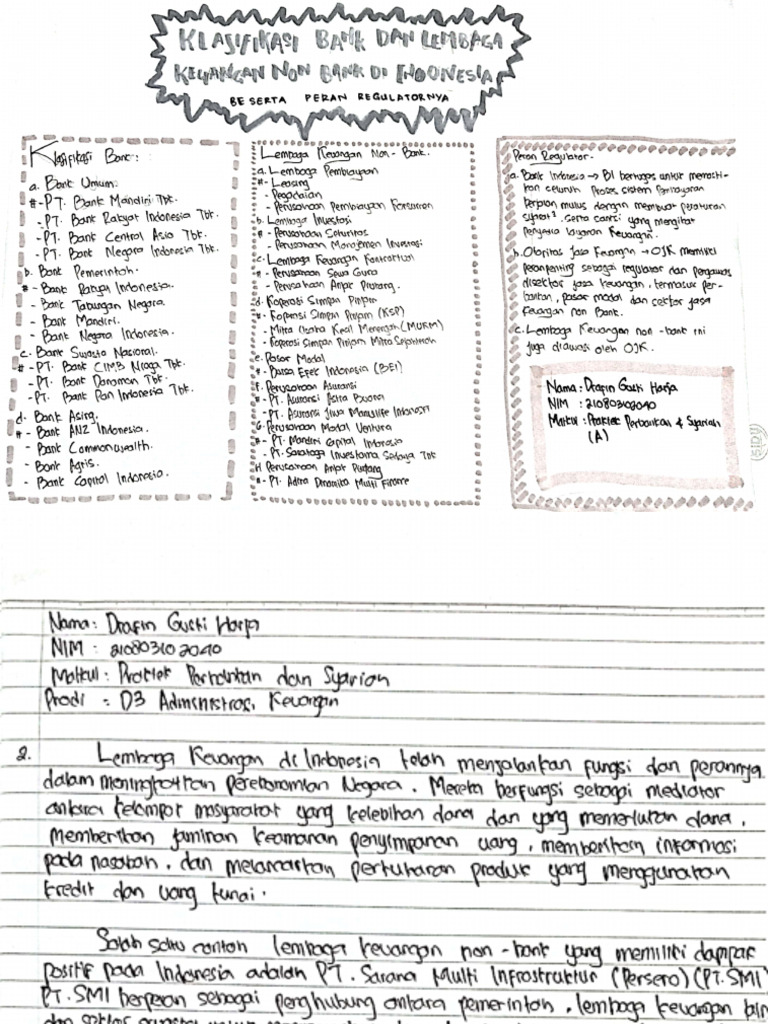 KLASIFIKASI BANK DAN LEMBAGA
KEUANGAN NON BANK DI INDONESIA
BESERTA PERAN REGULATORNYA
Klasifikasi Bank:
a. Bank Umum:
#- PT. Bank Mandiri Tbk.
- PT. Bank Rakyat Indonesia Tbk.
- PT. Bank Central Asia Tbk.
- PT. Bank Negara Indonesia Tbk.
b. Bank Pemerintah.
#- Bank Rakyat Indonesia.
- Bank Tabungan Negara.
- Bank Mandiri.
- Bank Negara Indonesia.
c. Bank Swasta Nasional.
#- PT. Bank CIMB Niaga Tbk.
- PT. Bank Danamon Tbk.
- PT. Bank Pan Indonesia Tbk.
d. Bank Asing.
#- Bank ANZ Indonesia.
- Bank Commonwealth.
- Bank Agris.
- Bank Capital Indonesia.
Lembaga Keuangan Non-Bank.
a. Lembaga Pembiayaan
#- Leasing
- Pegadaian
- Perusahaan Pembiayaan Konsumen
b. Lembaga Investasi
#- Perusahaan Sekuritas
- Perusahaan Manajemen Investasi
c. Lembaga Keuangan Kontraktual
#- Perusahaan Sewa Guna
- Perusahaan Anjak Piutang.
d. Koperasi Simpan Pinjam
#- Koperasi Simpan Pinjam (KSP)
- Mitra Usaha Kecil Menengah (MUKM)
- Koperasi Simpan Pinjam Mitra Sejahterah
e. Pasar Modal
#- Bursa Efek Indonesia (BEI)
F. Perusahaan Asuransi
#- PT. Asuransi Astra Buana
- PT. Asuransi Jiwa Manulife Indonesia
G. Perusahaan Modal Ventura
#- PT. Mandiri Capital Indonesia
- PT. Saratoga Investama Sedaya Tbk
H. Perusahaan Anjak Piutang
#- PT. Adira Dinamika Multi Finance
Peran Regulator.
a. Bank Indonesia → BI bertugas untuk memasti-
kan seluruh Proses sistem Pembayaran
berjalan mulus dengan membuat peraturan
syarat², serta sanksi yang mengikat
Penyedia layanan Keuangan.
b. Otoritas Jasa Keuangan → OJK memiliki
peran penting sebagai regulator dan pengawas
disektor jasa keuangan, termasuk per-
bankan, pasar modal dan sektor jasa
Keuangan non Bank.
c. Lembaga Keuangan non-bank ini
juga diawasi oleh OJK.
Nama: Drafin Gusti Harja
NIM : 210803102040
Matkul: Praktek Perbankan & Syariah
(A)
SIDU
Nama: Drafin Gusti Harja
NIM : 210803102040
Matkul: Praktek Perbankan dan Syariah
Prodi : D3 Administrasi Keuangan
2. Lembaga Keuangan di Indonesia telah menjalankan fungsi dan perannya
dalam meningkatkan perekonomian Negara. Mereka berfungsi sebagai mediator
antara kelompok masyarakat yang kelebihan dana dan yang memerlukan dana,
memberikan jaminan keamanan penyimpanan uang, memberikan informasi
pada nasabah, dan melancarkan pertukaran produk yang menggunakan
kredit dan uang tunai.
Salah satu contoh lembaga keuangan non-bank yang memiliki dampak
positif pada Indonesia adalah PT. Sarana Multi Infrastruktur (Persero) (PT.SMI)
PT.SMI berperan sebagai penghubung antara pemerintah, lembaga keuangan lain